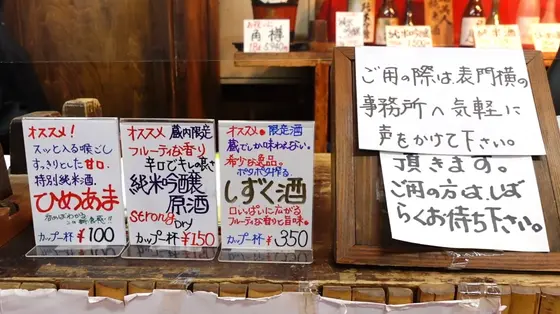 オススメ!
スッと入る喉ごし
すっきりとした甘口
特別純米酒
ひめあま
カップ一杯 ¥100
オススメ 蔵内限定
フルーティな香り
辛口でキレの良さ
純米吟醸
原酒
strong
Dry
カップ一杯 ¥150
オススメ 限定酒
蔵でしか味わえない。
希少な逸品。
ポタポタ搾る
しずく酒
口いっぱいに広がる
フルーティな香りと旨味。
カップ一杯 ¥350
ご用の際は表門横の
事務所へ気軽に
声をかけて下さい。
頂きます。
ご用の方は、しば
らくお待ち下さい。
角樽
純米吟醸